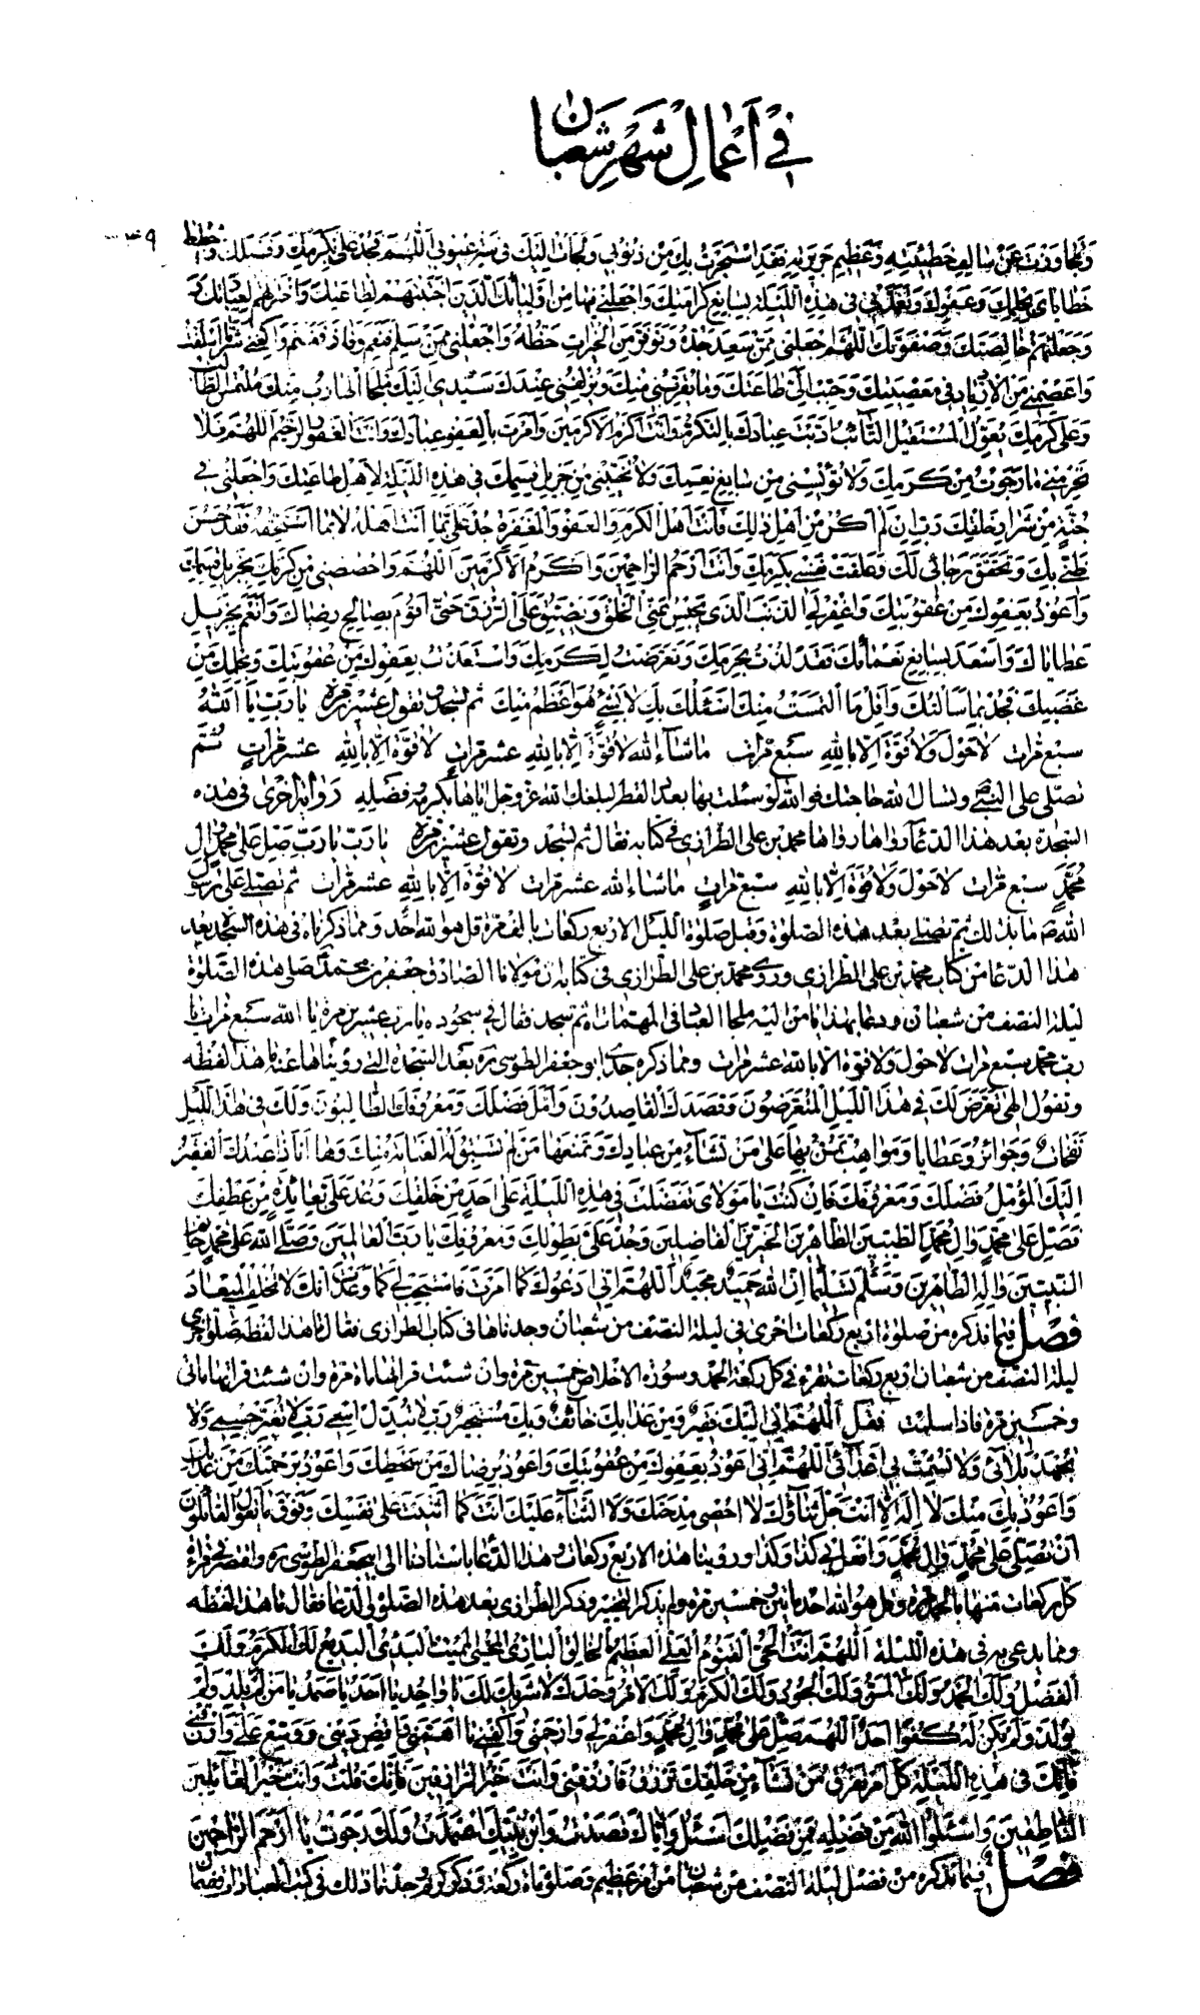 في أَعْمالِ شَهْرِ شَعْبان
وَتَجاوَزْتَ عَنْ سالِفِ خَطيئَتِهِ وَعَظيمِ جَريرَتِهِ فَقَدِ اسْتَجَرْتُ بِكَ مِنْ ذُنُوبي وَلَجَأْتُ اِلَيْكَ في سَتْرِ عُيُوبي اَللّهُمَّ فَجُدْ عَلَيَّ بِكَرَمِكَ وَفَضْلِكَ وَاحْطُطْ
خَطاياىَ بِحِلْمِكَ وَعَفْوِكَ وَتَغَمَّدْني في هذِهِ اللَّيْلَةِ بِسابِغِ كَرامَتِكَ وَاجْعَلْني فيها مِنْ اَوْلِيائِكَ الَّذينَ اجْتَبَيْتَهُمْ لِطاعَتِكَ وَاخْتَرْتَهُمْ لِعِبادَتِكَ
وَجَعَلْتَهُمْ خالِصَتَكَ وَصَفْوَتَكَ اَللّهُمَّ اجْعَلْني مِمَّنْ سَعِدَ جَدُّهُ وَتَوَفَّرَ مِنَ الْخَيْراتِ حَظُّهُ وَاجْعَلْني مِمَّنْ سَلِمَ فَنَعِمَ وَفازَ فَغَنِمَ وَاكْفِني شَرَّ ما اَسْلَفْتُ
وَاعْصِمْني مِنَ الْاِزْدِيادِ في مَعْصِيَتِكَ وَحَبِّبْ اِلَيَّ طاعَتَكَ وَما يُقَرِّبُني مِنْكَ وَيُزْلِفُني عِنْدَكَ سَيِّدي اِلَيْكَ مَلْجَأُ الْهارِبِ مِنْكَ مُلْتَمَسُ الطّالِبِ
وَعَلى كَرَمِكَ يُعَوِّلُ الْمُسْتَقيلُ التّائِبُ اَدَّبْتَ عِبادَكَ بِالتَّكَرُّمِ وَاَنْتَ اَكْرَمُ الْاَكْرَمينَ وَاَمَرْتَ بِالْعَفْوِ عِبادَكَ وَاَنْتَ الْغَفُورُ الرَّحيمُ اَللّهُمَّ فَلا
تَحْرِمْني ما رَجَوْتُ مِنْ كَرَمِكَ وَلا تُؤْيِسْني مِنْ سابِغِ نِعَمِكَ وَلا تُخَيِّبْني مِنْ جَزيلِ قِسَمِكَ في هذِهِ اللَّيْلَةِ لِاَهْلِ طاعَتِكَ وَاجْعَلْني في
جُنَّةٍ مِنْ شِرارِ خَليقَتِكَ رَبِّ اِنْ لَمْ اَكُنْ مِنْ اَهْلِ ذلِكَ فَاَنْتَ اَهْلُ الْكَرَمِ وَالْعَفْوِ وَالْمَغْفِرَةِ جُدْ عَلَيَّ بِما اَنْتَ اَهْلُهُ لا بِما اَسْتَحِقُّهُ فَقَدْ حَسُنَ
ظَنّي بِكَ وَتَحَقَّقَ رَجائي لَكَ وَعَلِقَتْ نَفْسي بِكَرَمِكَ وَاَنْتَ اَرْحَمُ الرّاحِمينَ وَاَكْرَمُ الْاَكْرَمينَ اَللّهُمَّ وَاخْصُصْني مِنْ كَرَمِكَ بِجَزيلِ قِسَمِكَ
وَاَعُوذُ بِعَفْوِكَ مِنْ عُقُوبَتِكَ وَاغْفِرْ لِيَ الذَّنْبَ الَّذي يَحْبِسُ عَنِّي الْخُلُقَ وَيُضَيِّقُ عَلَيَّ الرِّزْقَ حَتّى اَقُومَ بِصالِحِ رِضاكَ وَاَنْعَمَ بِجَزيلِ
عَطاياكَ وَاَسْعَدَ بِسابِغِ نَعْمائِكَ فَقَدْ لُذْتُ بِحَرَمِكَ وَتَعَرَّضْتُ لِكَرَمِكَ وَاسْتَعَذْتُ بِعَفْوِكَ مِنْ عُقُوبَتِكَ وَبِحِلْمِكَ مِنْ
غَضَبِكَ فَجُدْ بِما سَاَلْتُكَ وَاَنِلْ مَا الْتَمَسْتُ مِنْكَ اَسْئَلُكَ بِكَ لا بِشَيْءٍ هُوَ اَعْظَمُ مِنْكَ ثم تسجد وتقول عشرين مرة يا رَبِّ يا اَللهُ
سبع مرات لا حَوْلَ وَلا قُوَّةَ اِلّا بِاللهِ سبع مرات ما شاءَ اللهُ لا قُوَّةَ اِلّا بِاللهِ عشر مرات لا قُوَّةَ اِلّا بِاللهِ عشر مرات ثم
تصلى على النبي ص وتسال الله حاجتك فوالله لو سئلت بها بعدد القطر لبلغك الله عز وجل اياها بكرمه وفضله رواية اخرى في هذه
السجدة بعد هذا الدعاء رواها محمد بن على الطرازى في كتابه فقال ثم تسجد وتقول عشرين مرة يا رَبِّ يا رَبِّ صَلِّ عَلى مُحَمَّدٍ وَآلِ
مُحَمَّدٍ سبع مرات لا حَوْلَ وَلا قُوَّةَ اِلّا بِاللهِ سبع مرات ما شاءَ الله عشر مرات لا قُوَّةَ اِلّا بِاللهِ عشر مرات ثم تصلى على رسول
الله ص ما بدا لك ثم تصلى بعد هذه الصلوة وقبل صلوة الليل الاربع ركعات بالف مرة قل هو الله احد ومما ذكرناه في هذه السجدة بعد
هذا الدعا من كتاب محمد بن على الطرازى وروى محمد بن على الطرازى في كتابه ان مولانا الصادق جعفر بن محمد صلى هذه الصلوة
ليلة النصف من شعبان ودعا بهذا يا من اليه ملجا العباد في المهمات ثم سجد فقال في سجوده يا رب عشرين مرة يا الله سبع مرات يا
رب محمد سبع مرات لا حول ولا قوة الا بالله عشر مرات ومما ذكره جدى ابو جعفر الطوسى ره بعد السجدة التي رويناها عنه ما هذا لفظه
وتقول اِلهي تَعَرَّضَ لَكَ في هذَا اللَّيْلِ الْمُتَعَرِّضُونَ وَقَصَدَكَ الْقاصِدُونَ وَاَمَّلَ فَضْلَكَ وَمَعْرُوفَكَ الطّالِبُونَ وَلَكَ في هذَا اللَّيْلِ
نَفَحاتٌ وَجَوائِزُ وَعَطايا وَمَواهِبُ تَمُنُّ بِها عَلى مَنْ تَشاءُ مِنْ عِبادِكَ وَتَمْنَعُها مَنْ لَمْ تَسْبِقْ لَهُ الْعِنايَةُ مِنْكَ وَها اَنَا ذا عَبْدُكَ الْفَقيرُ
اِلَيْكَ الْمُؤَمِّلُ فَضْلَكَ وَمَعْرُوفَكَ فَاِنْ كُنْتَ يا مَوْلاىَ تَفَضَّلْتَ في هذِهِ اللَّيْلَةِ عَلى اَحَدٍ مِنْ خَلْقِكَ وَعُدْتَ عَلَيْهِ بِعائِدَةٍ مِنْ عَطْفِكَ
فَصَلِّ عَلى مُحَمَّدٍ وَآلِ مُحَمَّدٍ الطَّيِّبينَ الطّاهِرينَ الْخَيِّرينَ الْفاضِلينَ وَجُدْ عَلَيَّ بِطَوْلِكَ وَمَعْرُوفِكَ يا رَبَّ الْعالَمينَ وَصَلَّى اللهُ عَلى مُحَمَّدٍ خاتَمِ
النَّبِيّينَ وَآلِهِ الطّاهِرينَ وَسَلَّمَ تَسْليمًا اِنَّ اللهَ حَميدٌ مَجيدٌ اَللّهُمَّ اِنّي اَدْعُوكَ كَما اَمَرْتَ فَاسْتَجِبْ لي كَما وَعَدْتَ اِنَّكَ لا تُخْلِفُ الْميعادَ
فصل فيما نذكره من صلوة اربع ركعات اخرى في ليلة النصف من شعبان وجدناها في كتاب الطرازى فقال ما هذا لفظه صلوة اخرى
ليلة النصف من شعبان اربع ركعات تقرء في كل ركعة الحمد وسورة الاخلاص خمسين مرة وان شئت قراتها ماة مرة وان شئت قراتها ماتى
وخمسين مرة فاذا سلمت فقل اَللّهُمَّ اِنّي اِلَيْكَ فَقيرٌ وَمِنْ عَذابِكَ خائِفٌ وَبِكَ مُسْتَجيرٌ رَبِّ لا تُبَدِّلِ اسْمي رَبِّ لا تُغَيِّرْ جِسْمي وَلا
تُجْهِدْ بَلائي وَلا تُشْمِتْ بي اَعْدائي اَللّهُمَّ اِنّي اَعُوذُ بِعَفْوِكَ مِنْ عُقُوبَتِكَ وَاَعُوذُ بِرِضاكَ مِنْ سَخَطِكَ وَاَعُوذُ بِرَحْمَتِكَ مِنْ عَذابِكَ
وَاَعُوذُ بِكَ مِنْكَ لا اِلهَ اِلّا اَنْتَ جَلَّ ثَناؤُكَ لا اُحْصي مِدْحَتَكَ وَلَا الثَّناءَ عَلَيْكَ اَنْتَ كَما اَثْنَيْتَ عَلى نَفْسِكَ وَفَوْقَ ما يَقُولُ الْقائِلُونَ
اَنْ تُصَلِّيَ عَلى مُحَمَّدٍ وَآلِ مُحَمَّدٍ وَافْعَلْ بي كَذا وَكَذا وروينا هذه الاربع ركعات وهذا الدعا باسنادنا الى ابى جعفر الطوسى ره
كل ركعات منها بالحمد مرة وقل هو الله احد ماتين وخمسين مرة ولم يذكر التخيير وذكر الطرازى بعد هذه الصلوة الدعا فقال ما هذا لفظه
ومما يدعى به في هذه الليلة اَللّهُمَّ اَنْتَ الْحَيُّ الْقَيُّومُ الْعَلِيُّ الْعَظيمُ الْخالِقُ الْبارِئُ الْمُحْيِي الْمُميتُ الْبَدِيءُ الْبَديعُ لَكَ الْكَرَمُ وَلَكَ
الْفَضْلُ وَلَكَ الْحَمْدُ وَلَكَ الْمَنُّ وَلَكَ الْجُودُ وَلَكَ الْكَرَمُ وَلَكَ الْاَمْرُ وَحْدَكَ لا شَريكَ لَكَ يا واحِدُ يا اَحَدُ يا صَمَدُ يا مَنْ لَمْ يَلِدْ وَلَمْ
يُولَدْ وَلَمْ يَكُنْ لَهُ كُفُوًا اَحَدٌ اَللّهُمَّ صَلِّ عَلى مُحَمَّدٍ وَآلِ مُحَمَّدٍ وَاغْفِرْ لي وَارْحَمْني وَاكْفِني ما اَهَمَّني وَاقْضِ دَيْني وَوَسِّعْ عَلَيَّ وَارْزُقْني
فَاِنَّكَ في هذِهِ اللَّيْلَةِ كُلَّ اَمْرٍ تَفْرُقُ وَمَنْ تَشاءُ مِنْ خَلْقِكَ تَرْزُقُ فَارْزُقْني وَاَنْتَ خَيْرُ الرّازِقينَ فَاِنَّكَ قُلْتَ وَاَنْتَ خَيْرُ الْقائِلينَ
النّاطِقينَ وَاسْئَلُوا اللهَ مِنْ فَضْلِهِ فَمِنْ فَضْلِكَ اَسْئَلُ وَاِيّاكَ قَصَدْتُ وَابْنَ نَبِيِّكَ اعْتَمَدْتُ وَلَكَ رَجَوْتُ يا اَرْحَمَ الرّاحِمينَ
فصل فيما نذكره من فضل ليلة النصف من شعبان من امر عظيم وصلوة ماة ركعة وذكر كرم وجدنا ذلك في كتب العبادات